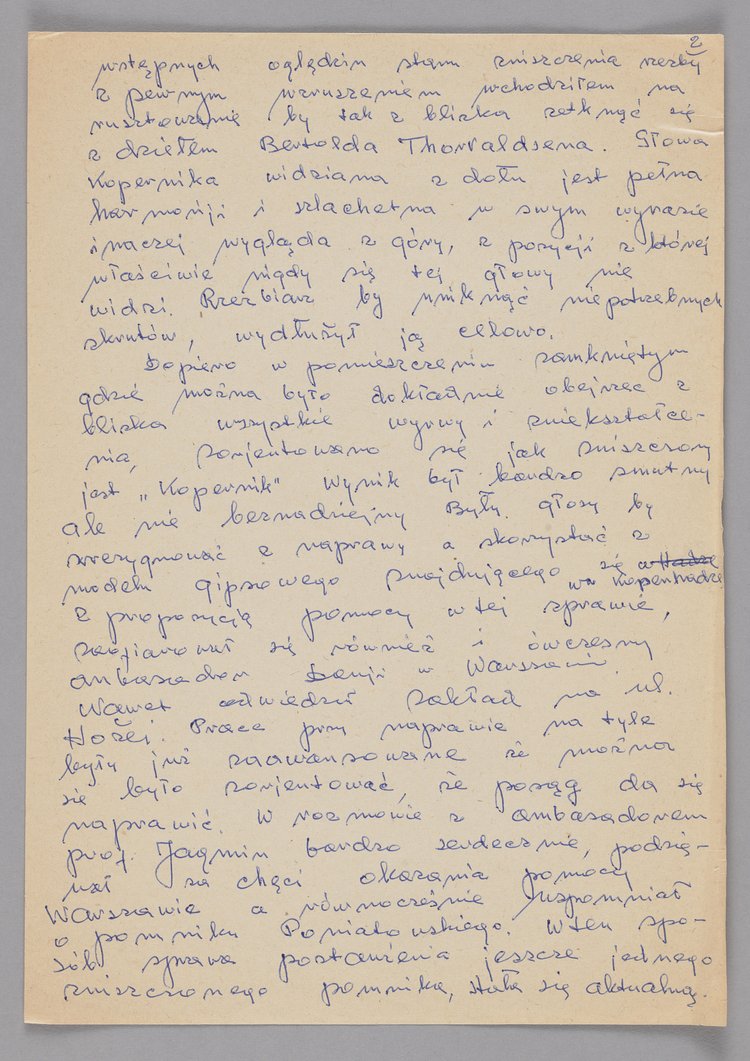 2
wstępnych oględzin stanu zniszczenia rzeźby
z pewnym wzruszeniem wchodziłem na
rusztowanie by tak z bliska zetknąć się
z dziełem Bertolda Thorvaldsena. Głowa
Kopernika widziana z dołu jest pełna
harmoniji i szlachetna w swym wyrazie
inaczej wygląda z góry, z pozycji z której
właściwie nigdy się tej głowy nie
widzi. Rzeźbiarz by uniknąć niepotrzebnych
skrótów, wydłużył ją celowo.
Dopiero w pomieszczeniu zamkniętym
gdzie można było dokładnie obejrzeć z
bliska wszystkie wyrwy i zniekształce-
nia, zorjentowano się jak zniszczony
jest „Kopernik" Wynik był bardzo smutny
ale nie beznadziejny Były głosy by
zrezygnować z naprawy a skorzystać z
modelu gipsowego znajdującego się
w Kopenhadze
z propozycją pomocy w tej sprawie,
zaofiarował się również i ówczesny
ambasador Danji w Warszawie
Nawet odwiedził zakład na ul.
Hożej. Prace przy naprawie na tyle
były już zaawansowane że można
się było zorjentować, że posąg da się
naprawić. W rozmowie z ambasadorem
prof. Jagmin bardzo serdecznie, podzię-
wał za chęci okazania pomocy
Warszawie a równocześnie wspomniał
o pomniku Poniatowskiego. W ten spo-
sób sprawa postawienia jeszcze jednego
zniszczonego pomnika, stała się aktualną.